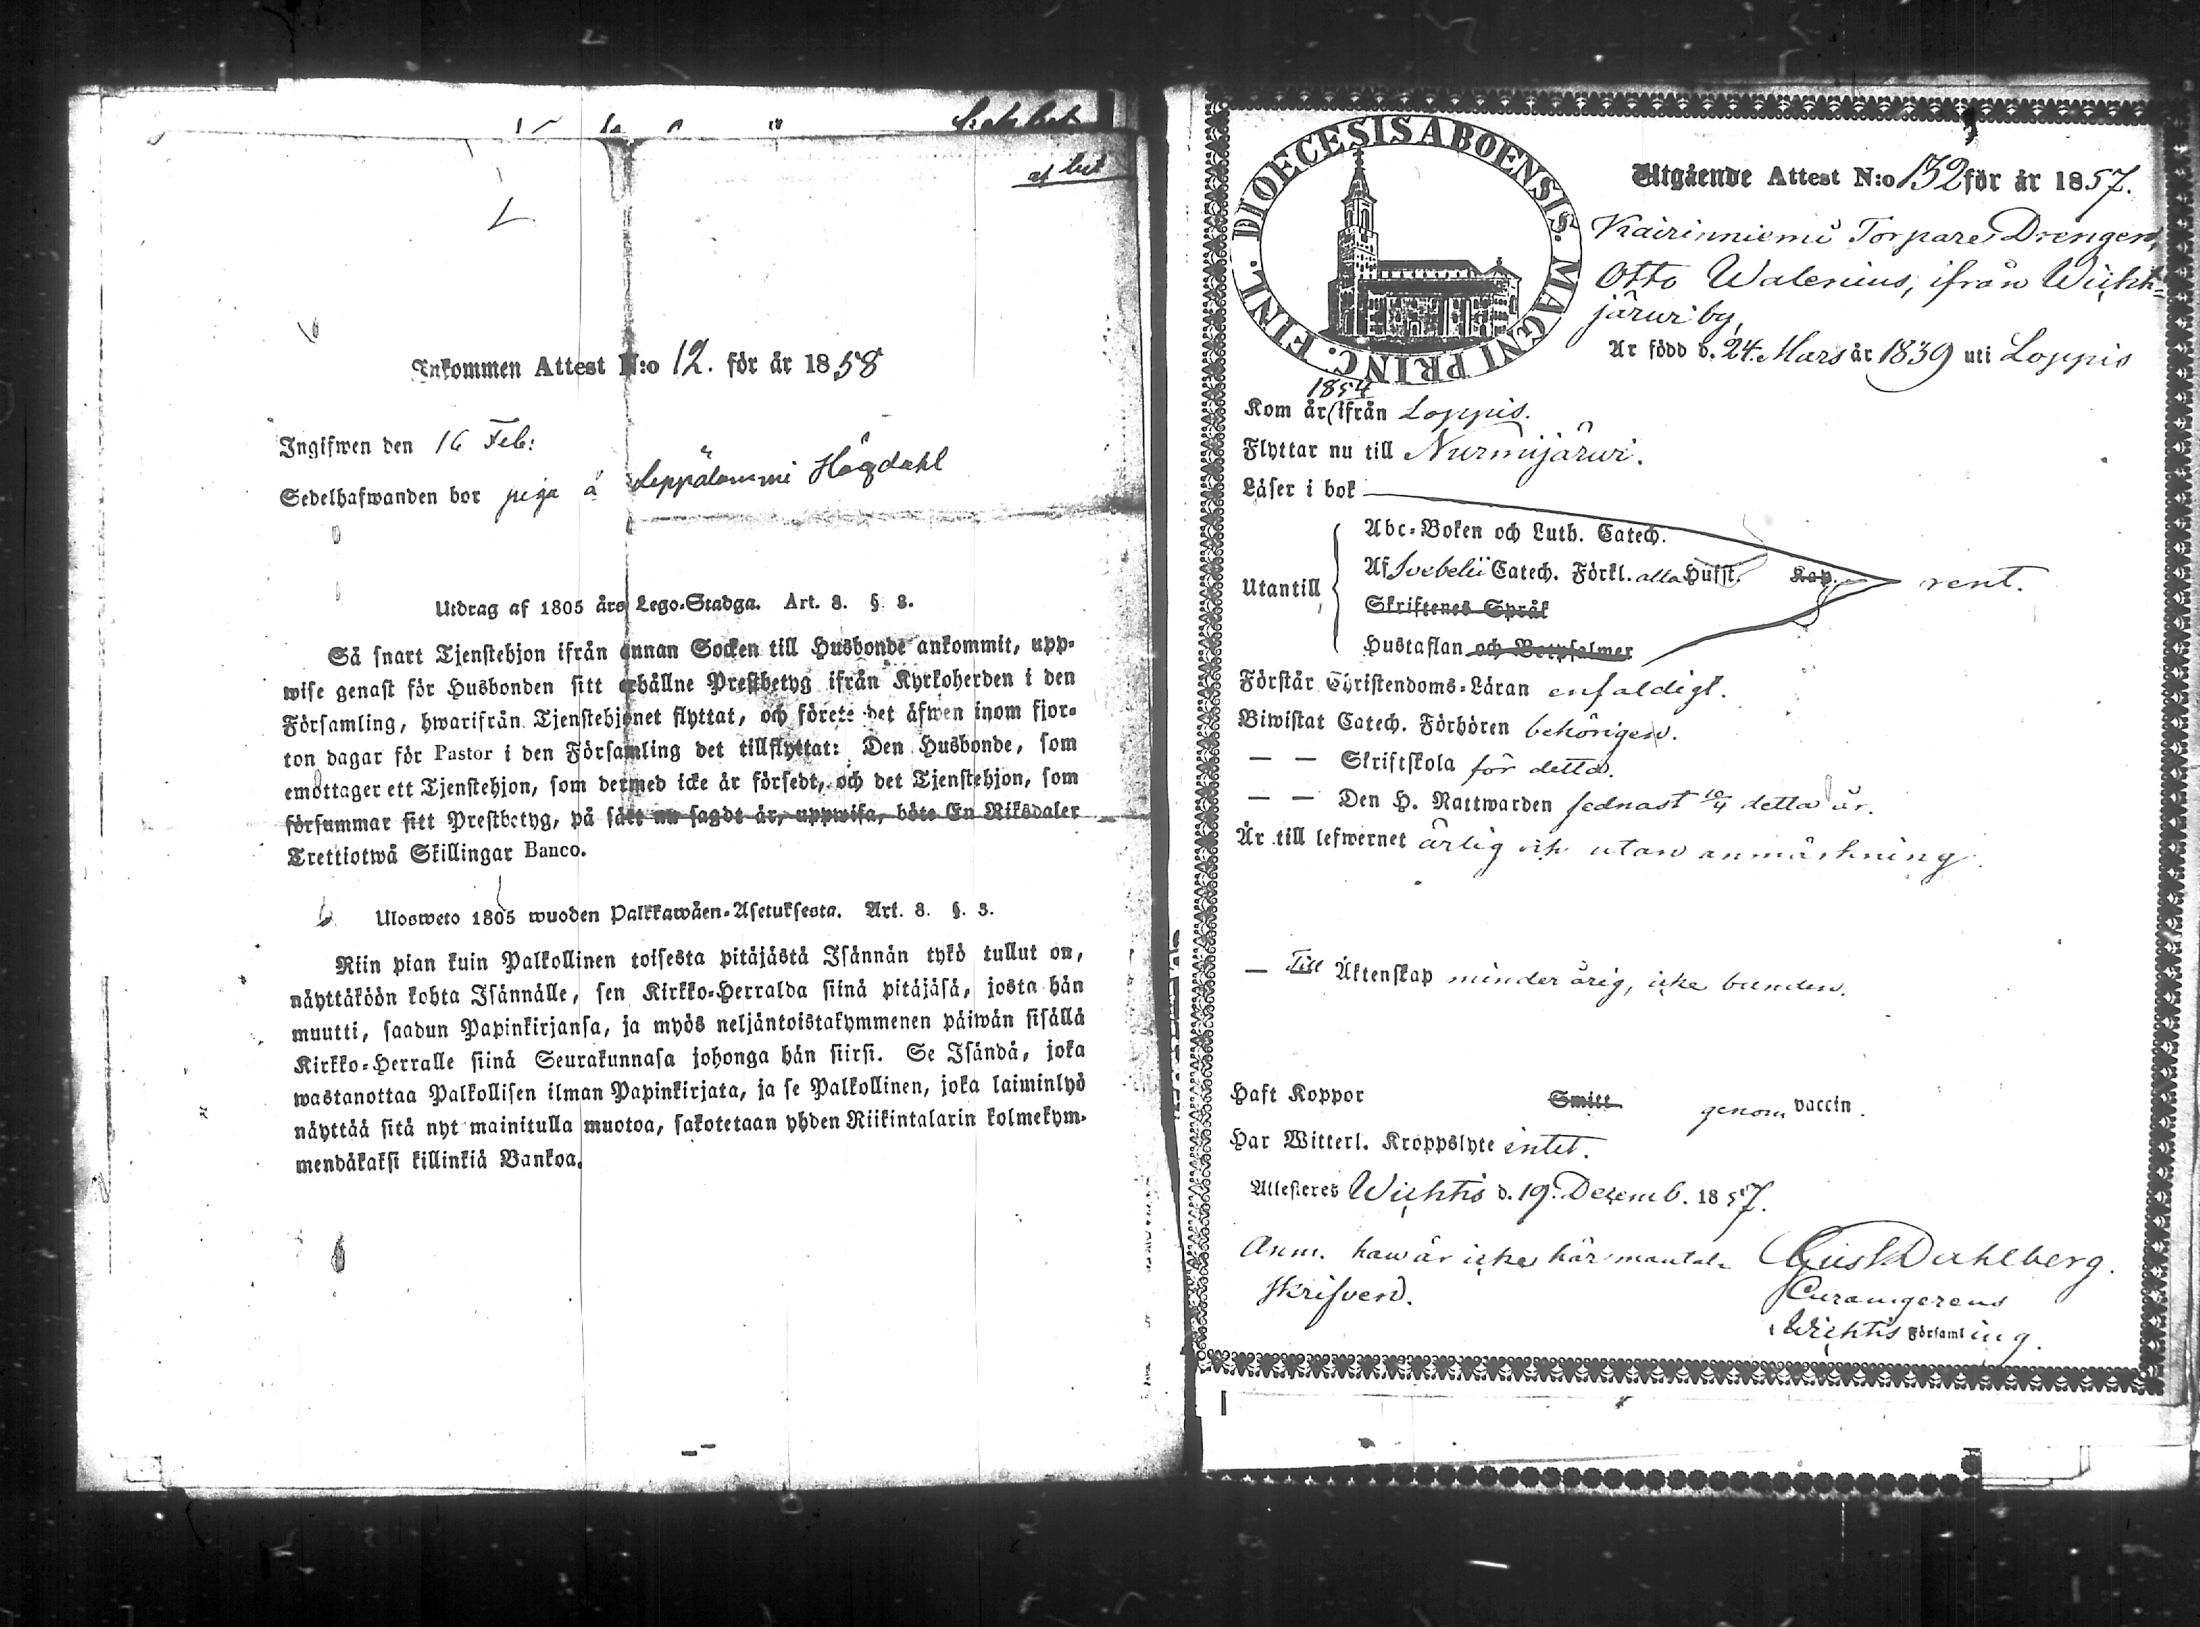 af bet
Inkommen Attest N:o 12. för år 1858
Ingifwen den 16 Feb:
Sedelhafwanden bor piga å Leppälammi Högdahl
Utdrag af 1805 års Lego-Stadga. Art. 8. §. 3.
Så snart Tjenstehjon ifrån annan Socken till Husbonde ankommit, upp-
wise genast för Husbonden sitt erhållne Prestbetyg ifrån Kyrkoherden i den
Församling, hwarifrån Tjenstehjonet flyttat, och förete det äfwen inom fjor-
ton dagar för Pastor i den Församling det tillflyttat: Den Husbonde, som
emottager ett Tjenstehjon, som dermed icke är försedt, och det Tjenstehjon, som
försummar sitt Prestbetyg, på sätt nu sagdt är, uppwisa, böte En Riksdaler
Trettiotwå Skillingar Banco.
Ulosweto 1805 wuoden Palkkawäen-Asetuksesta. Art. 8. §. 3.
Niin pian kuin Palkollinen toisesta pitäjästä Isännän tykö tullut on,
näyttäköön kohta Isännälle, sen Kirkko-Herralda siinä pitäjäsä, josta hän
muutti, saadun Papinkirjansa, ja myös neljäntoistakymmenen päiwän sisällä
Kirkko-Herralle siinä Seurakunnasa johonga hän siirsi. Se Isändä, joka
wastanottaa Palkollisen ilman Papinkirjata, ja se Palkollinen, joka laiminlyö
näyttää sitä nyt mainitulla muotoa, sakotetaan yhden Riikintalarin kolmekym-
mendäkaksi killinkiä Bankoa.
DIOECESIS ABOENSIS. MAGNI PRINC. FINL.
Utgående Attest N:o 132 för år 1857.
Kairinniemi Torpares Drengen,
Otto Walenius, ifrån Wichti-
järwi by,
Är född d. 24. Mars år 1839 uti Loppis
1854
Kom år ifrån Loppis.
Flyttar nu till Nurmijärwi.
Läser i bok
Utantill
Abc-Boken och Luth. Catech.
Af Svebelii Catech. Förkl. alla Hufst. Kap.
rent.
Skriftenes Språk
Hustaflan och Botpsalmer
Förstår Christendoms-Läran enfaldigt.
Biwistat Catech. Förhören behörigen.
— — Skriftskola för detta.
— — Den H. Nattwarden sednast 10/4 detta år.
Är till lefwernet ärlig och utan anmärkning.
— Till Äktenskap minderårig, icke bunden.
Haft Koppor Smitt genom vaccin.
Har Witterl. Kroppslyte intet.
Attesteres Wichtis d. 19. Decemb. 1857.
Anm. han är icke här mantals
skrifven.
Gust Dahlberg.
Curamgerens
i Wichtis Församling.